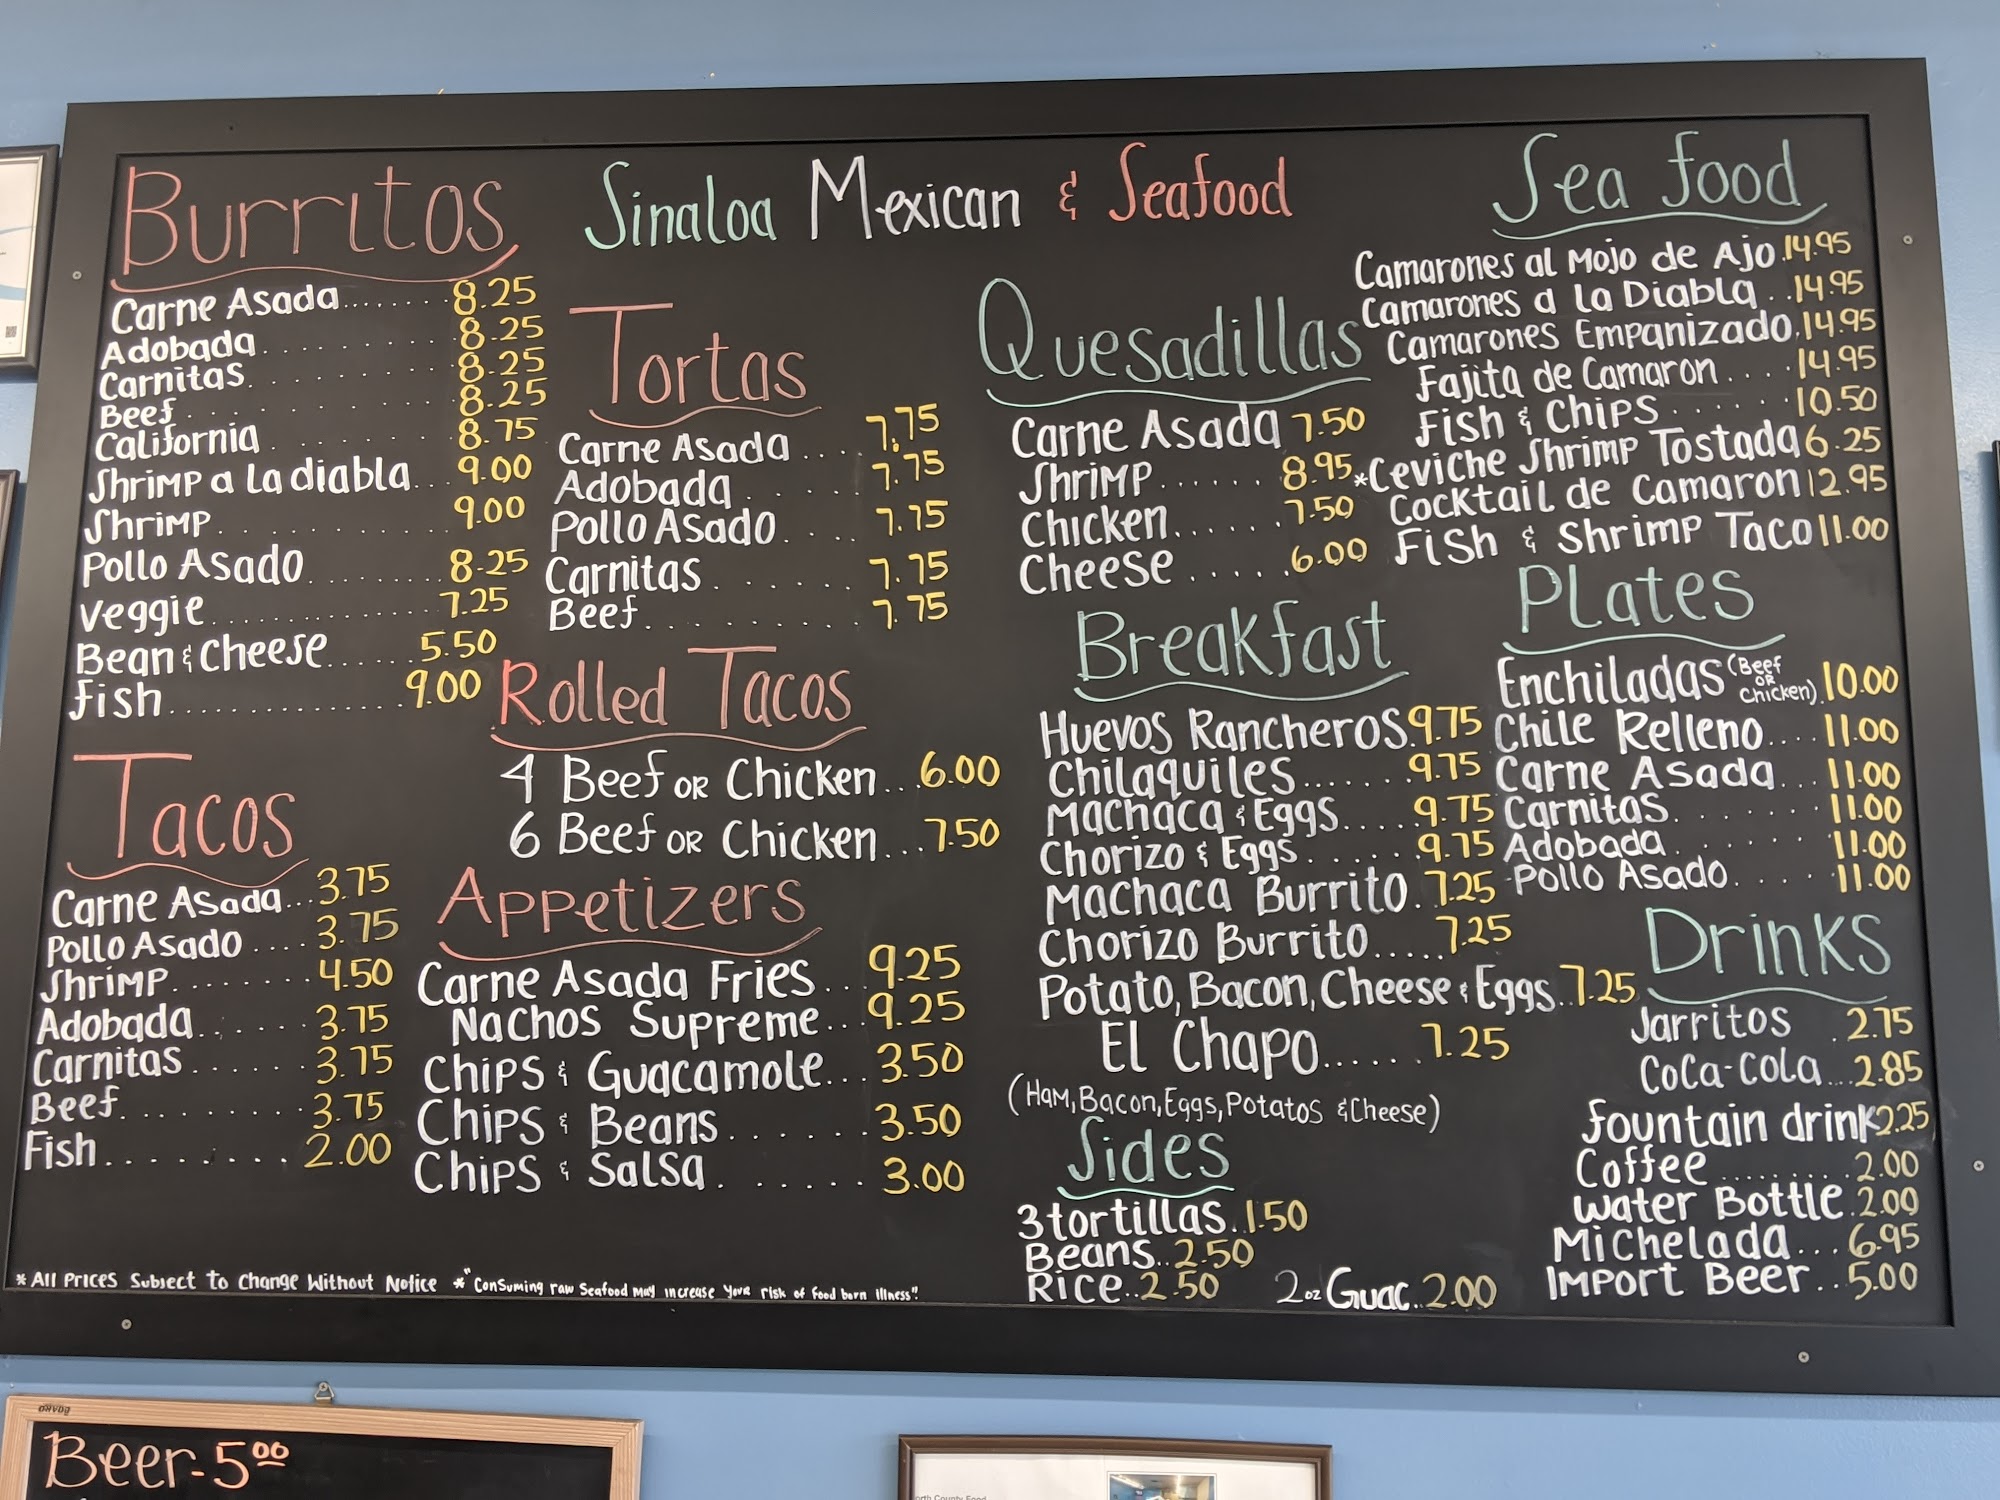 Sinaloa Mexican & Seafood
Burritos
Carne Asada.......8.25
Adobada..........8.25
Carnitas..........8.25
Beef..........8.25
California........8.75
Shrimp a La diabla...9.00
Shrimp..........9.00
Pollo Asado.........8.25
Veggie..............7.25
Bean & Cheese......5.50
Fish...............9.00
Tacos
Carne Asada...3.75
Pollo Asado....3.75
Shrimp........4.50
Adobada.......3.75
Carnitas.......3.75
Beef..........3.75
Fish.........2.00
Tortas
Carne Asada....7.75
Adobada......7.75
Pollo Asado....7.75
Carnitas......7.75
Beef..........7.75
Rolled Tacos
4 Beef OR Chicken...6.00
6 Beef OR Chicken...7.50
Appetizers
Carne Asada Fries...9.25
Nachos Supreme...9.25
Chips & Guacamole...3.50
Chips & Beans......3.50
Chips & Salsa......3.00
Quesadillas
Carne Asada 7.50
Shrimp......8.95
Chicken......7.50
Cheese......6.00
Breakfast
Huevos Rancheros.9.75
Chilaquiles.......9.75
Machaca & Eggs....9.75
Chorizo & Eggs......9.75
Machaca Burrito.7.25
Chorizo Burrito.....7.25
Potato, Bacon, Cheese & Eggs..7.25
El Chapo......7.25
(Ham, Bacon, Eggs, Potatos & Cheese)
Sides
3 tortillas..1.50
Beans..2.50
Rice..2.50
2oz Guac..2.00
Sea food
Camarones al Mojo de Ajo.14.95
Camarones a la Diabla..14.95
Camarones Empanizado.14.95
Fajita de Camaron....14.95
Fish & Chips......10.50
*Ceviche Shrimp Tostada 6.25
Cocktail de Camaron 12.95
Fish & Shrimp Taco 11.00
Plates
Enchiladas (Beef OR Chicken).10.00
Chile Relleno....11.00
Carne Asada...11.00
Carnitas.......11.00
Adobada.......11.00
Pollo Asado.....11.00
Drinks
Jarritos .2.75
Coca-Cola...2.85
fountain drink 2.25
Coffee.........2.00
Water Bottle.2.00
Michelada...6.95
Import Beer..5.00
* All Prices Subject to Change Without Notice *"Consuming raw Seafood May increase your risk of food born illness".
Beer-5.00
BOARD
North County Food